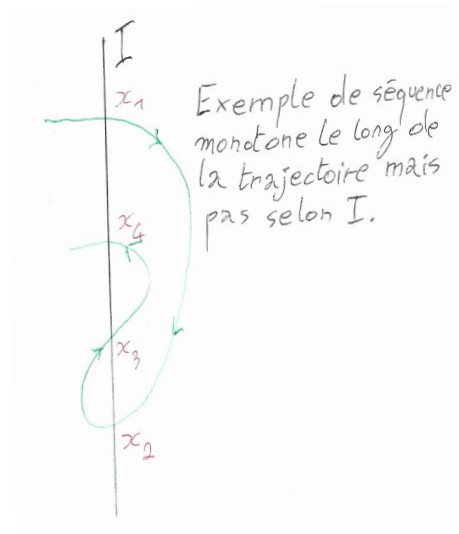 I
x₁
Exemple de séquence
monotone le long de
la trajectoire mais
pas selon I.
x₄
x₃
x₂